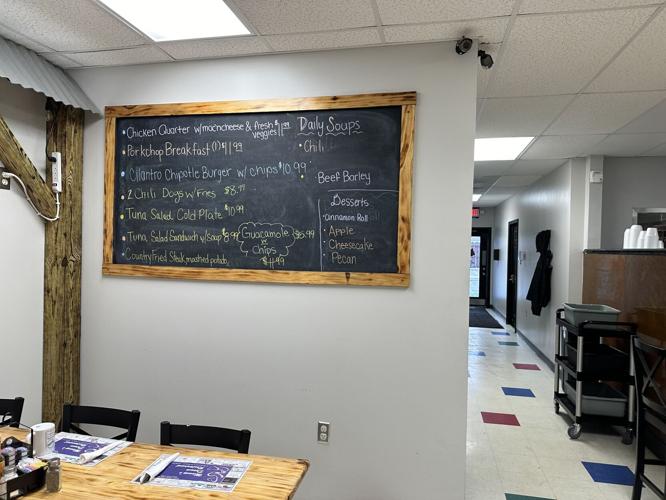 Chicken Quarter w/mac'n cheese & fresh $11.99
veggies
Porkchop Breakfast (1) $11.99
Cilantro Chipotle Burger w/ chips $10.99
2 Chili Dogs w/Fries $8.99
Tuna Salad Cold Plate $10.99
Tuna Salad Sandwich w/Soup $8.99
Country Fried Steak, mashed potato,
$11.99
Guacamole
Chips
$5.99
Daily Soups
Chili
Beef Barley
Desserts
cinnamon Roll
Apple
Cheesecake
Pecan
EXIT